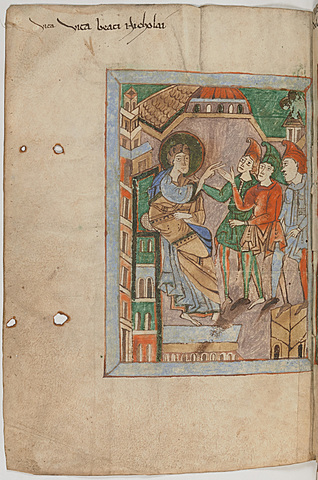 vita vita beati Nicholai